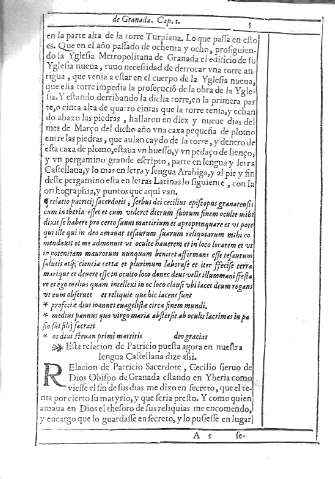 de Granada. Cap. 1.
5
en la parte alta de la torre Turpiana. Lo que passa en esto
es. Que en el año passado de ochenta y ocho, prosiguien-
do la Yglesia Metropolitana de Granada el edificio de su
Yglesia nueua, tuuo necessidad de derrocar vna torre an-
tigua, que venia a estar en el cuerpo de la Yglesia nueua,
que esta torre impedia la prosecució de la obra de la Ygle-
sia. Y estando derribando la dicha torre, en la primera par
te, o cinta alta de quatro cintas que la torre tenia, y echan
do abaxo las piedras, hallaron en diez y nueue dias del
mes de Março del dicho año vna caxa pequeña de plomo
entre las piedras, que auiao caydo de la torre, y dentro de
esta caxa de plomo, estaua vn huesso, y vn pedaço de lienço,
y vn pergamino grande escripto, parte en lengua y letra
Castellana, y lo mas en letra y lengua Arabiga, y al pie y fin
deste pergamino esta en letras Latinas lo siguiente, con la
orthographia, y puntos que aqui van.
relatio patricij sacerdotis, serbus dei cecilius episcopus granatensis
cum in iberia esset et cum videret dierum suorum finem oculte mihi
dixit se habere pro certo suum martirium et apropinquare et vt pote
qui ille qui in deo amauat tesaurum suarum reliquiarum mihi co
mendauit et me admonuit vt oculte hauerem et in loco locarem et vt
in potentiam maurorum nunquam beniret affirmans esse tesaurum
salutis atque ciencia certa et plurimum laborasse et iter fecisse terra
marique et devere esse in oculto loco donec deus velit illum manifesta
re et ego melius quam intellexi in oc loco clausi vbi iacet deum rogans
vt eum obserbet et reliquie que hic iacent sunt
* profecia diui ioannis euangelista circa finem mundi.
* medius pannus quo virgo maria abstersit ab oculis lacrimas in pa
sio sui filij sacrati
* os diui stevan primi martiris deo gracias
Esta relacion de Patricio puesta agora en nuestra
lengua Castellana dize assi.
Relacion de Patricio Sacerdote, Cecilio sieruo de
Dios Obispo de Granada estando en Yberia como
viesse el fin de sus dias me dixo en secreto, que el te-
nia por cierto su matyrio, y que seria presto. Y como quien
amaua en Dios el thesoro de sus reliquias me encomendo,
y encargo que lo guardasse en secreto, y lo pusiesse en lugar
A 5
se-